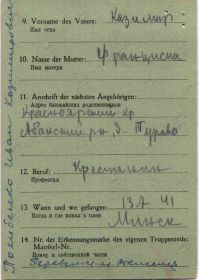 9. Vorname des Vaters: Казимир
Имя отца
10. Name der Mutter: Франциска
Имя матери
11. Anschrift der nächsten Angehörigen:
Адрес ближайших родственников
Красноярский кр.
Абанский р-н, д. Турово
12. Beruf: Крестьянин
Профессия
13. Wann und wo gefangen: 13.7.41
Когда и где попал в плен Минск
14. Nr. der Erkennungsmarke des eigenen Truppenteils:
Matrikel-Nr.
Номер в собственной части
Иван Казимирович